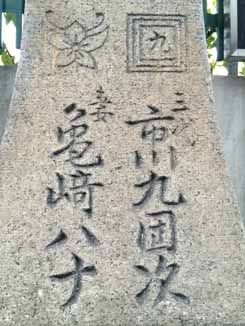 九
三代
市川九団次
妻
亀崎ハナ